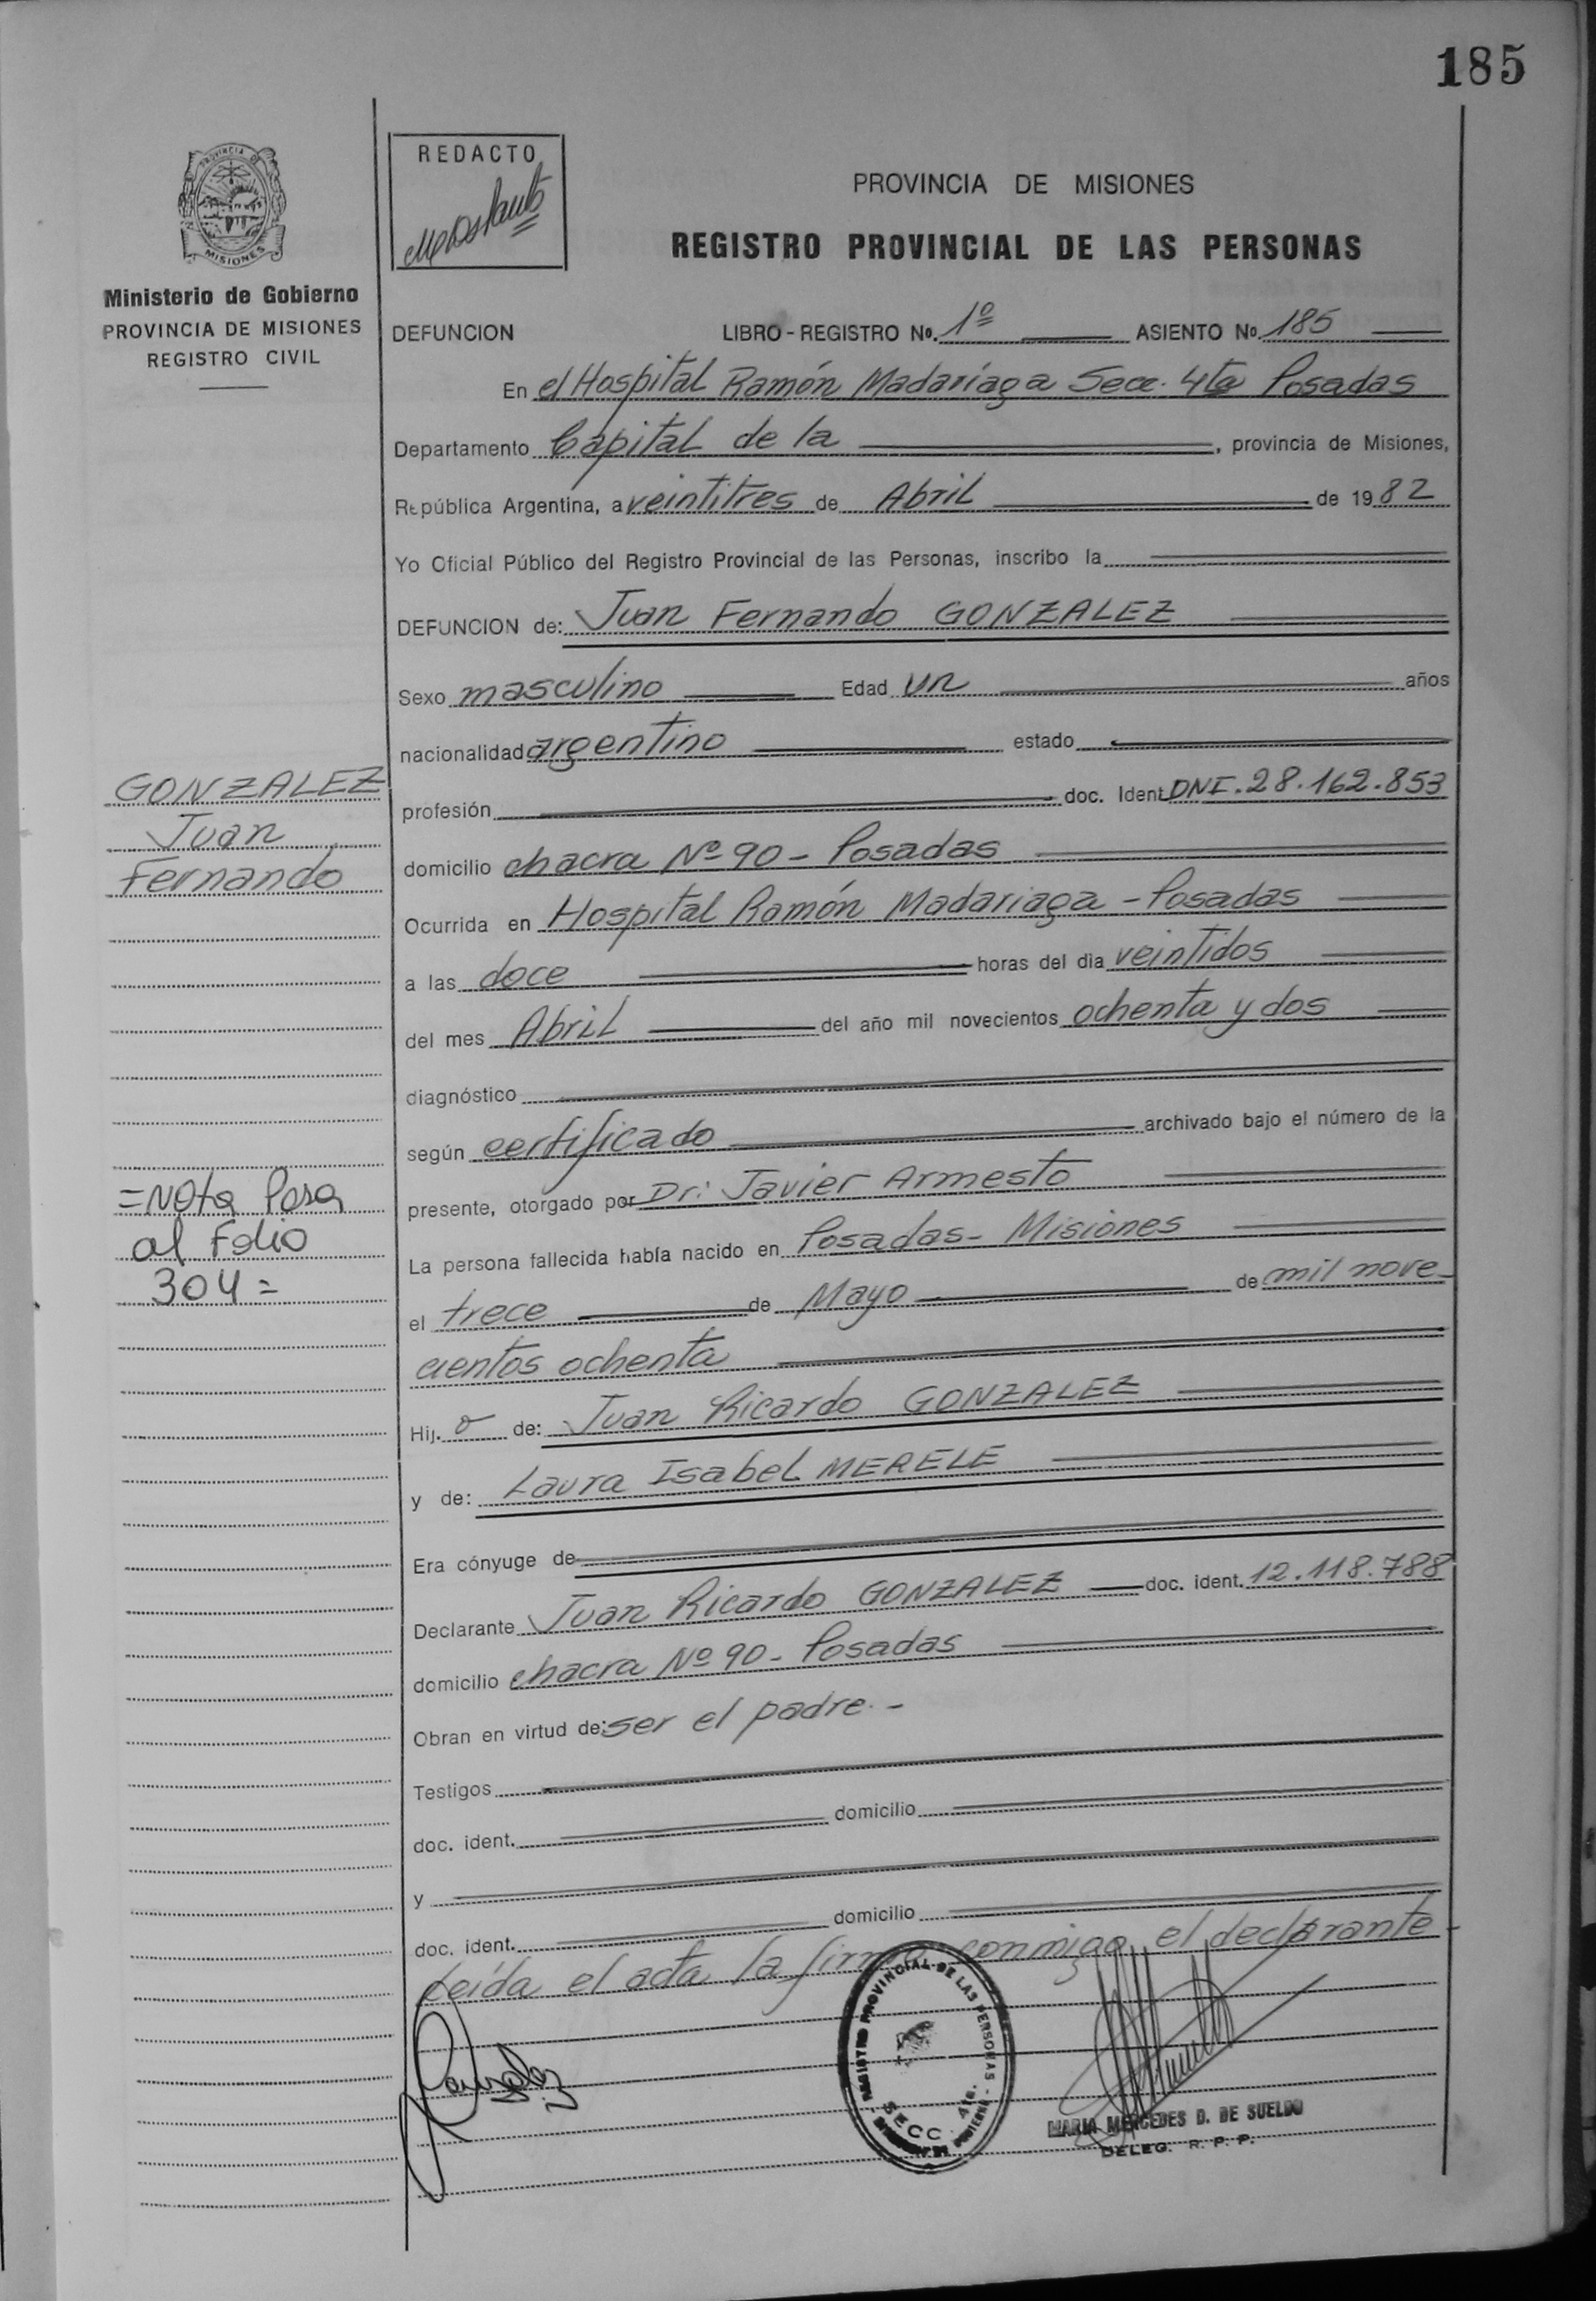 185
PROVINCIA DE
MISIONES
Ministerio de Gobierno
PROVINCIA DE MISIONES
REGISTRO CIVIL
REDACTO
PROVINCIA DE MISIONES
REGISTRO PROVINCIAL DE LAS PERSONAS
DEFUNCION LIBRO - REGISTRO No. 1º ASIENTO No. 185
En el Hospital Ramón Madariaga Secc. 4ta Posadas
Departamento Capital de la , provincia de Misiones,
República Argentina, a veintitres de Abril de 1982
Yo Oficial Público del Registro Provincial de las Personas, inscribo la
DEFUNCION de: Juan Fernando GONZALEZ
Sexo masculino Edad un años
nacionalidad argentino estado
profesión doc. Ident DNI. 28.162.853
domicilio chacra Nº 90 - Posadas
Ocurrida en Hospital Ramón Madariaga - Posadas
a las doce horas del dia veintidos
del mes Abril del año mil novecientos ochenta y dos
diagnóstico
según certificado archivado bajo el número de la
presente, otorgado por Dr: Javier Armesto
La persona fallecida había nacido en Posadas - Misiones
el trece de Mayo de mil nove-
cientos ochenta
Hij. o de: Juan Ricardo GONZALEZ
y de: Laura Isabel MERELE
Era cónyuge de
Declarante Juan Ricardo GONZALEZ doc. ident. 12.118.788
domicilio chacra Nº 90 - Posadas
Obran en virtud de: ser el padre. -
Testigos
doc. ident. domicilio
y
doc. ident. domicilio
Leída el acta la firma conmigo el declarante -
GONZALEZ
Juan
Fernando
=Nota Pasa
al Folio
304=
Gonzalez
REGISTRO PROVINCIAL DE LAS PERSONAS
SECC. 4ta.
MARIA MERCEDES D. DE SUELDO
DELEG. R. P. P.